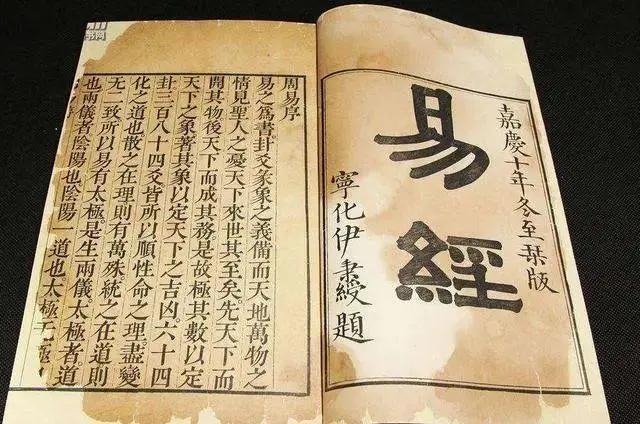 嘉慶十年冬至琹版
易經
寧化伊秉綬題
周易序
易之爲書卦爻彖象之義備而天地萬物之
情見聖人之憂天下來世其至矣。先天下而
開其物後天下而成其務。是故極其數以定
天下之象著其象以定天下之吉凶六十四
卦三百八十四爻皆所以順性命之理。盡變
化之道也散之在理則有萬殊。統之在道則
无二致所以易有太極。是生兩儀。太極者道
也兩儀者陰陽也陰陽一道也太極无極